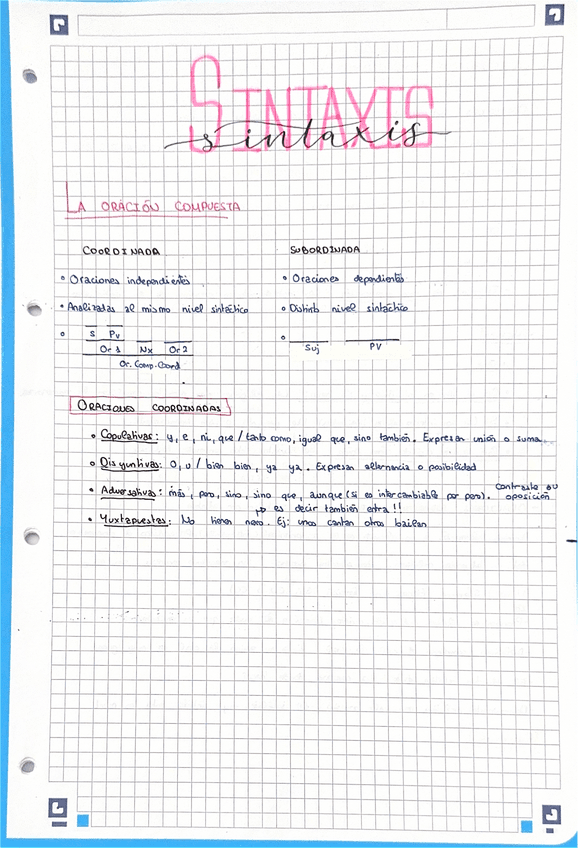 SINTAXIS
sintaxis
LA ORACIÓN COMPUESTA
COORDINADA
SUBORDINADA
• Oraciones independientes
• Oraciones dependientes
• Analizadas al mismo nivel sintáctico
• Distinto nivel sintáctico
S PV
Or 1 Nx Or 2
Or. Comp. Coord
Suj PV
ORACIONES COORDINADAS
• Copulativas: y, e, ni, que / tanto como, igual que, sino también. Expresan unión o suma.
• Disyuntivas: o, u / bien bien, ya ya. Expresan alternancia o posibilidad
• Adversativas: mas, pero, sino, sino que, aunque (si es intercambiable por pero). contraste ou oposición
es decir también entra!!
• Yuxtapuestas: No tienen nexo. Ej: unos cantan otros bailan